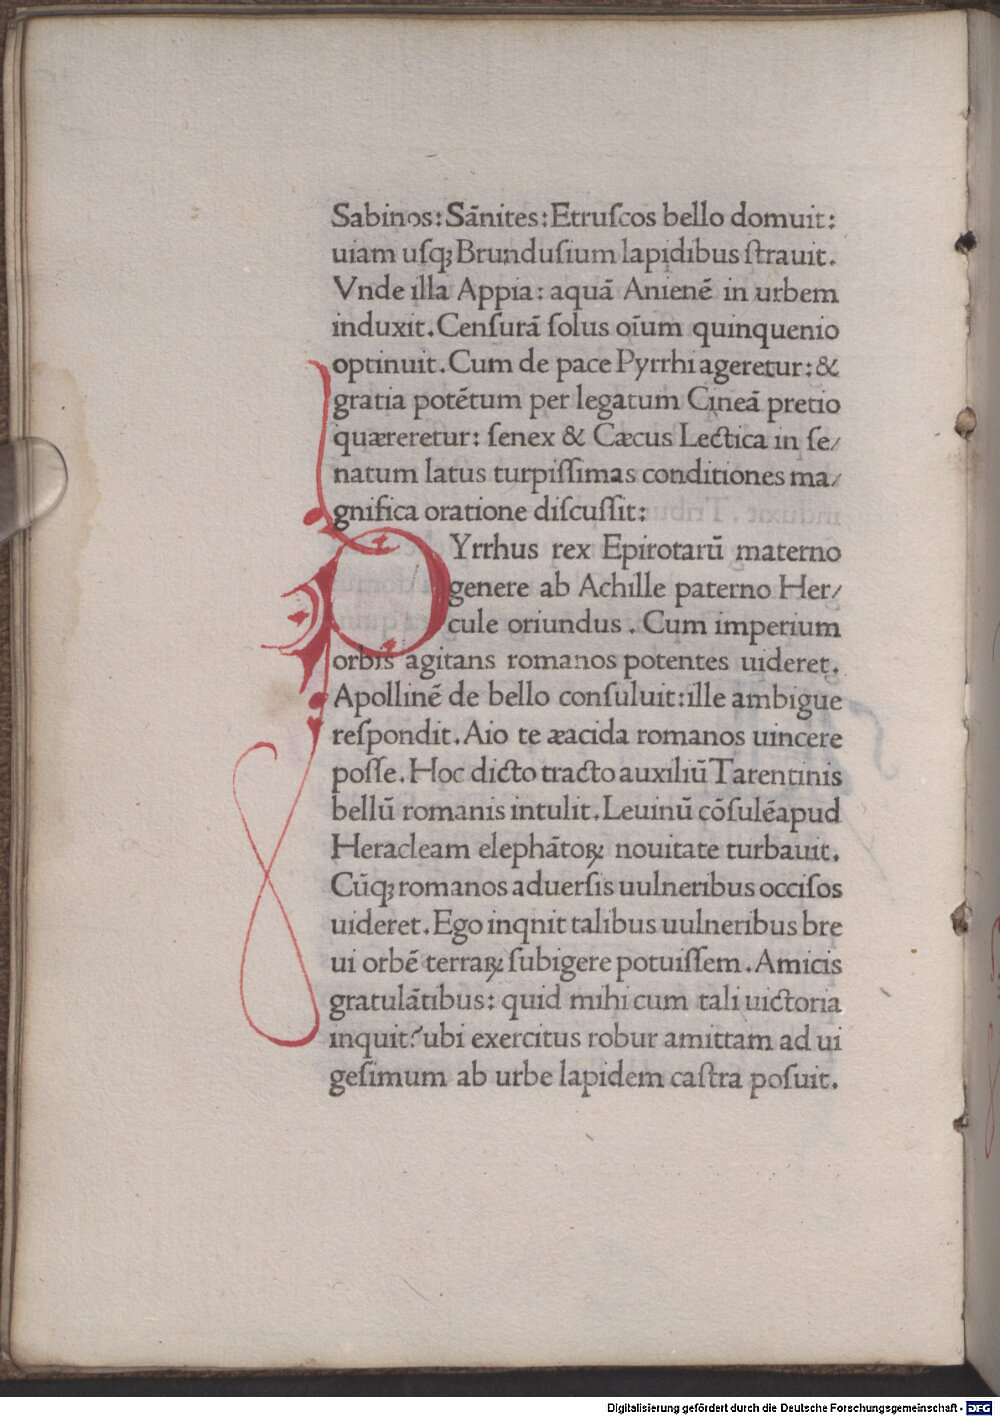 Sabinos: Sãnites: Etruſcos bello domuit:
uiam uſqꝫ Brunduſium lapidibus ſtrauit.
Vnde illa Appia: aquã Anienẽ in urbem
induxit. Cenſurã ſolus oĩum quinquenio
optinuit. Cum de pace Pyrrhi ageretur: &
gratia potẽtum per legatum Cineã pretio
quæreretur: ſenex & Cæcus Lectica in ſe/
natum latus turpiſſimas conditiones ma/
gnifica oratione diſcuſſit:
PYrrhus rex Epirotarũ materno
genere ab Achille paterno Her/
cule oriundus. Cum imperium
orbis agitans romanos potentes uideret.
Apollinẽ de bello conſuluit: ille ambigue
reſpondit. Aio te æacida romanos uincere
poſſe. Hoc dicto tracto auxiliũ Tarentinis
bellũ romanis intulit. Leuinũ cõſulẽ apud
Heracleam elephãtoꝝ nouitate turbauit.
Cũqꝫ romanos aduerſis uulneribus occiſos
uideret. Ego inqnit talibus uulneribus bre
ui orbẽ terraꝝ ſubigere potuiſſem. Amicis
gratulãtibus: quid mihi cum tali uictoria
inquit? ubi exercitus robur amittam ad ui
geſimum ab urbe lapidem caſtra poſuit.
Digitalisierung gefördert durch die Deutsche Forschungsgemeinschaft - DFG